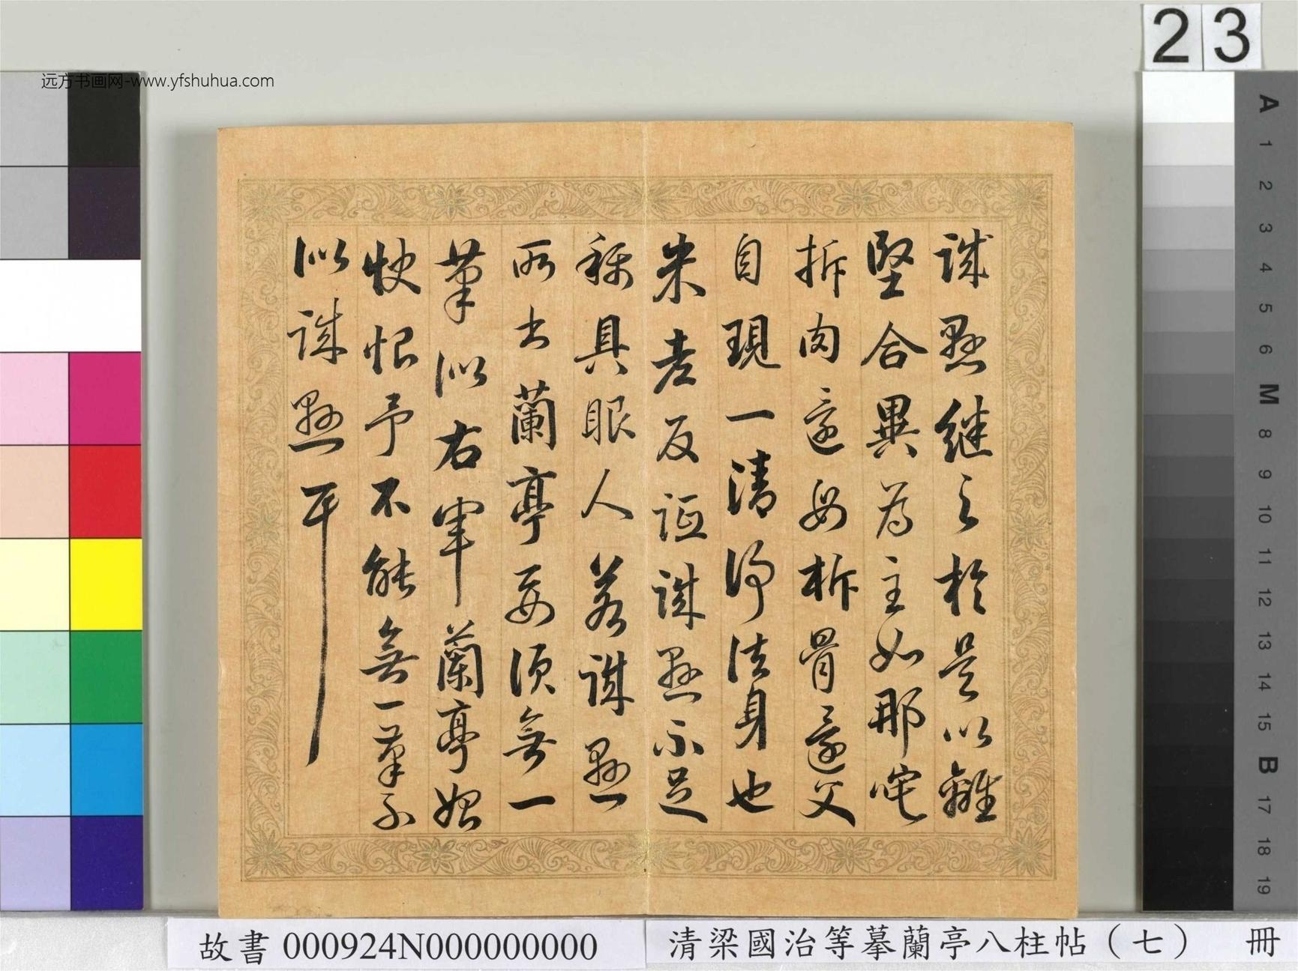 远方书画网-www.yfshuhua.com
23
誠懸繼之於是以離
堅合異為主如那吒
拆肉還母拆骨還父
自現一清淨法身也
米老反詆誠懸不足
稱具眼人若誠懸
所書蘭亭要須無一
筆似右軍蘭亭始
快恨予不能無一筆不
似誠懸耳
A
1
2
3
4
5
6
M
8
9
10
11
12
13
14
15
B
17
18
19
故書 000924N000000000
清梁國治等摹蘭亭八柱帖（七） 冊